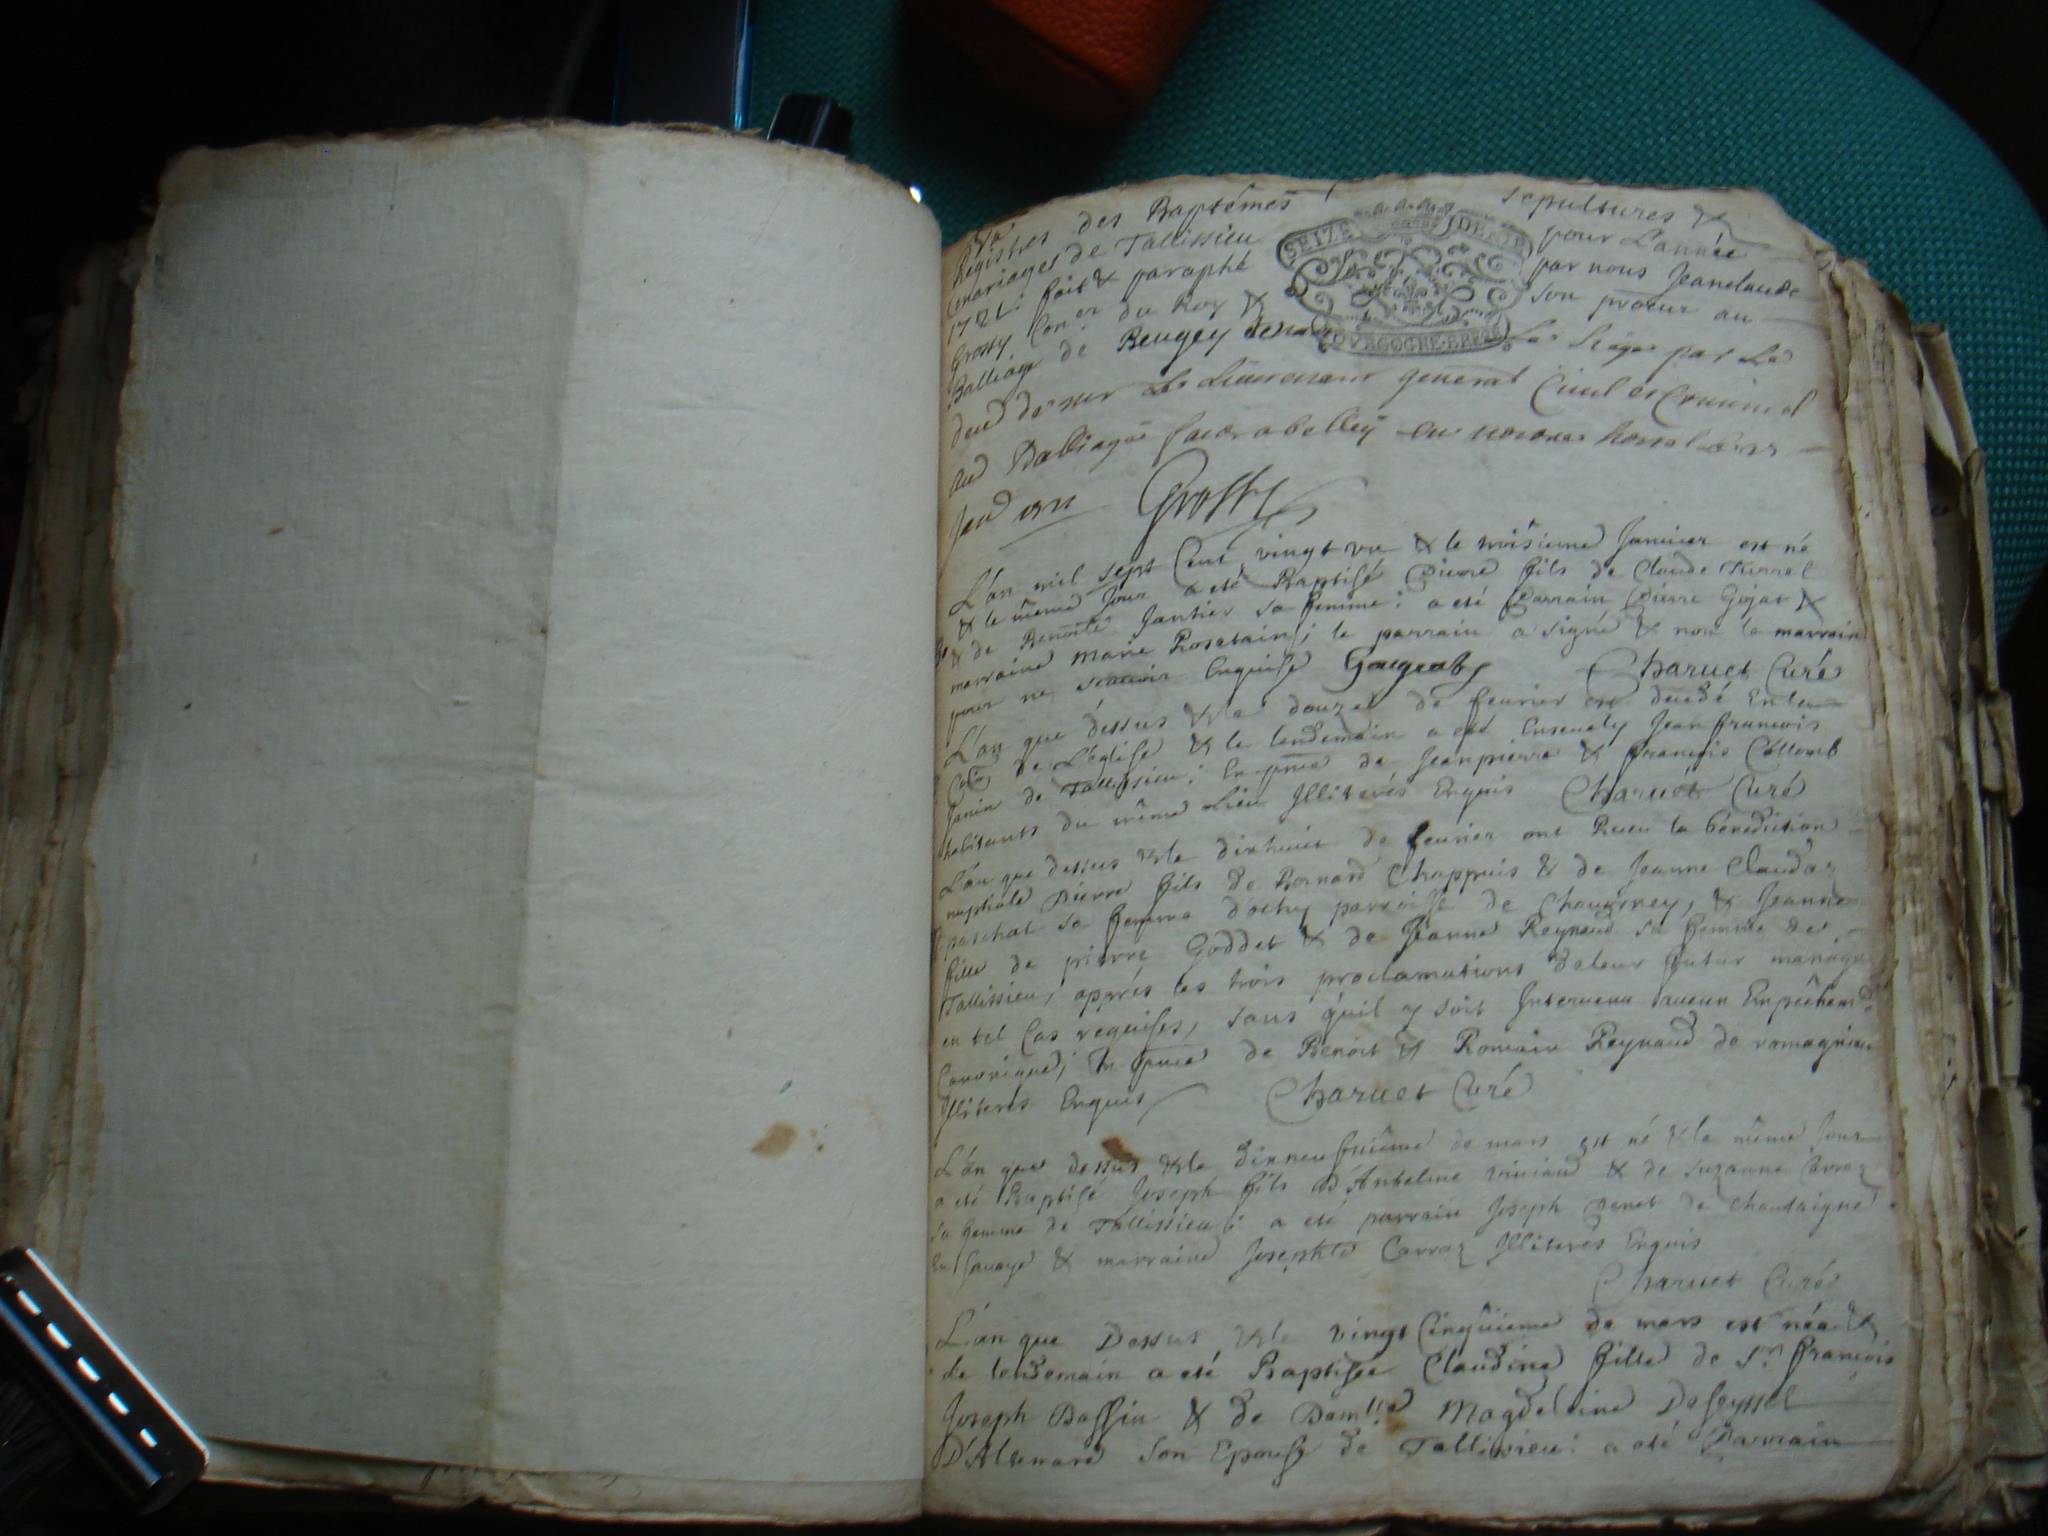 Registres des Baptêmes sepultures &
mariages de Tallissieu pour L'année
1721: fait & paraphé par nous Jeanclaude
Grossy Con.er du Roy & son procur au
Balliage de Beugey
SEIZE DENIE
BOVRGOGNE-BRESSE
Le Siege par Le
dessus Le Lieutenant general Ciuil et Criminel
au Balliage
Grossy
L'an mil sept Cent vingt un & le troisieme Januier est né
& le même Jour a eté Baptisé Pierre fils de Claude
& de Benoite Jantier sa femme: a eté Parrain Pierre Gojat &
marraine Marie Rosetain; le parrain a signé & non la marraine
pour ne scauoir Enquise Charuet Curé
L'an que dessus & le douze de feurier est decedé
de L'église & le lendemain a eté Enseuely Jean francois
Janin de Tallissieu: En pñce de Jeanpierre & francois Collomb
habitants du même Lieu Illiterés Enquis Charuet Curé
L'an que dessus & le dixhuict de feurier ont Receu la bénédiction
nuptiale Pierre fils de Bernard Chappuis & de Jeanne Claudaz
paschal sa femme d'ochy parroisse de Chauorney, & Jeanne
fille de pierre Goddet & de Jeanne Reynaud sa femme de
Tallissieu, après les trois proclamations de leur futur mariage
en tel Cas requises, sans qu'il y soit Interuenu aucun Empêchem.t
Canonique; En pñce de Benoit & Romain Reynaud de romagnieu
Illiterés Enquis Charuet Curé
L'an que dessus & le dixneufuiême de mars est né & le même Jour
a eté Baptisé Joseph fils d'Antelme & de Suzanne Carraz
sa femme de Tallissieu: a eté parrain Joseph de Chautaigne
En Sauoye & marraine Josephte Carraz Illiterés Enquis
Charuet Curé
L'an que Dessus & le vingt Cinquieme de mars est née &
le lendemain a eté Baptisée Claudine fille de S.r François
Joseph Bassin & de Dem.lle Magdeleine Deseyssel
D'Artemare son Epouse de Tallissieu: a eté Parrain